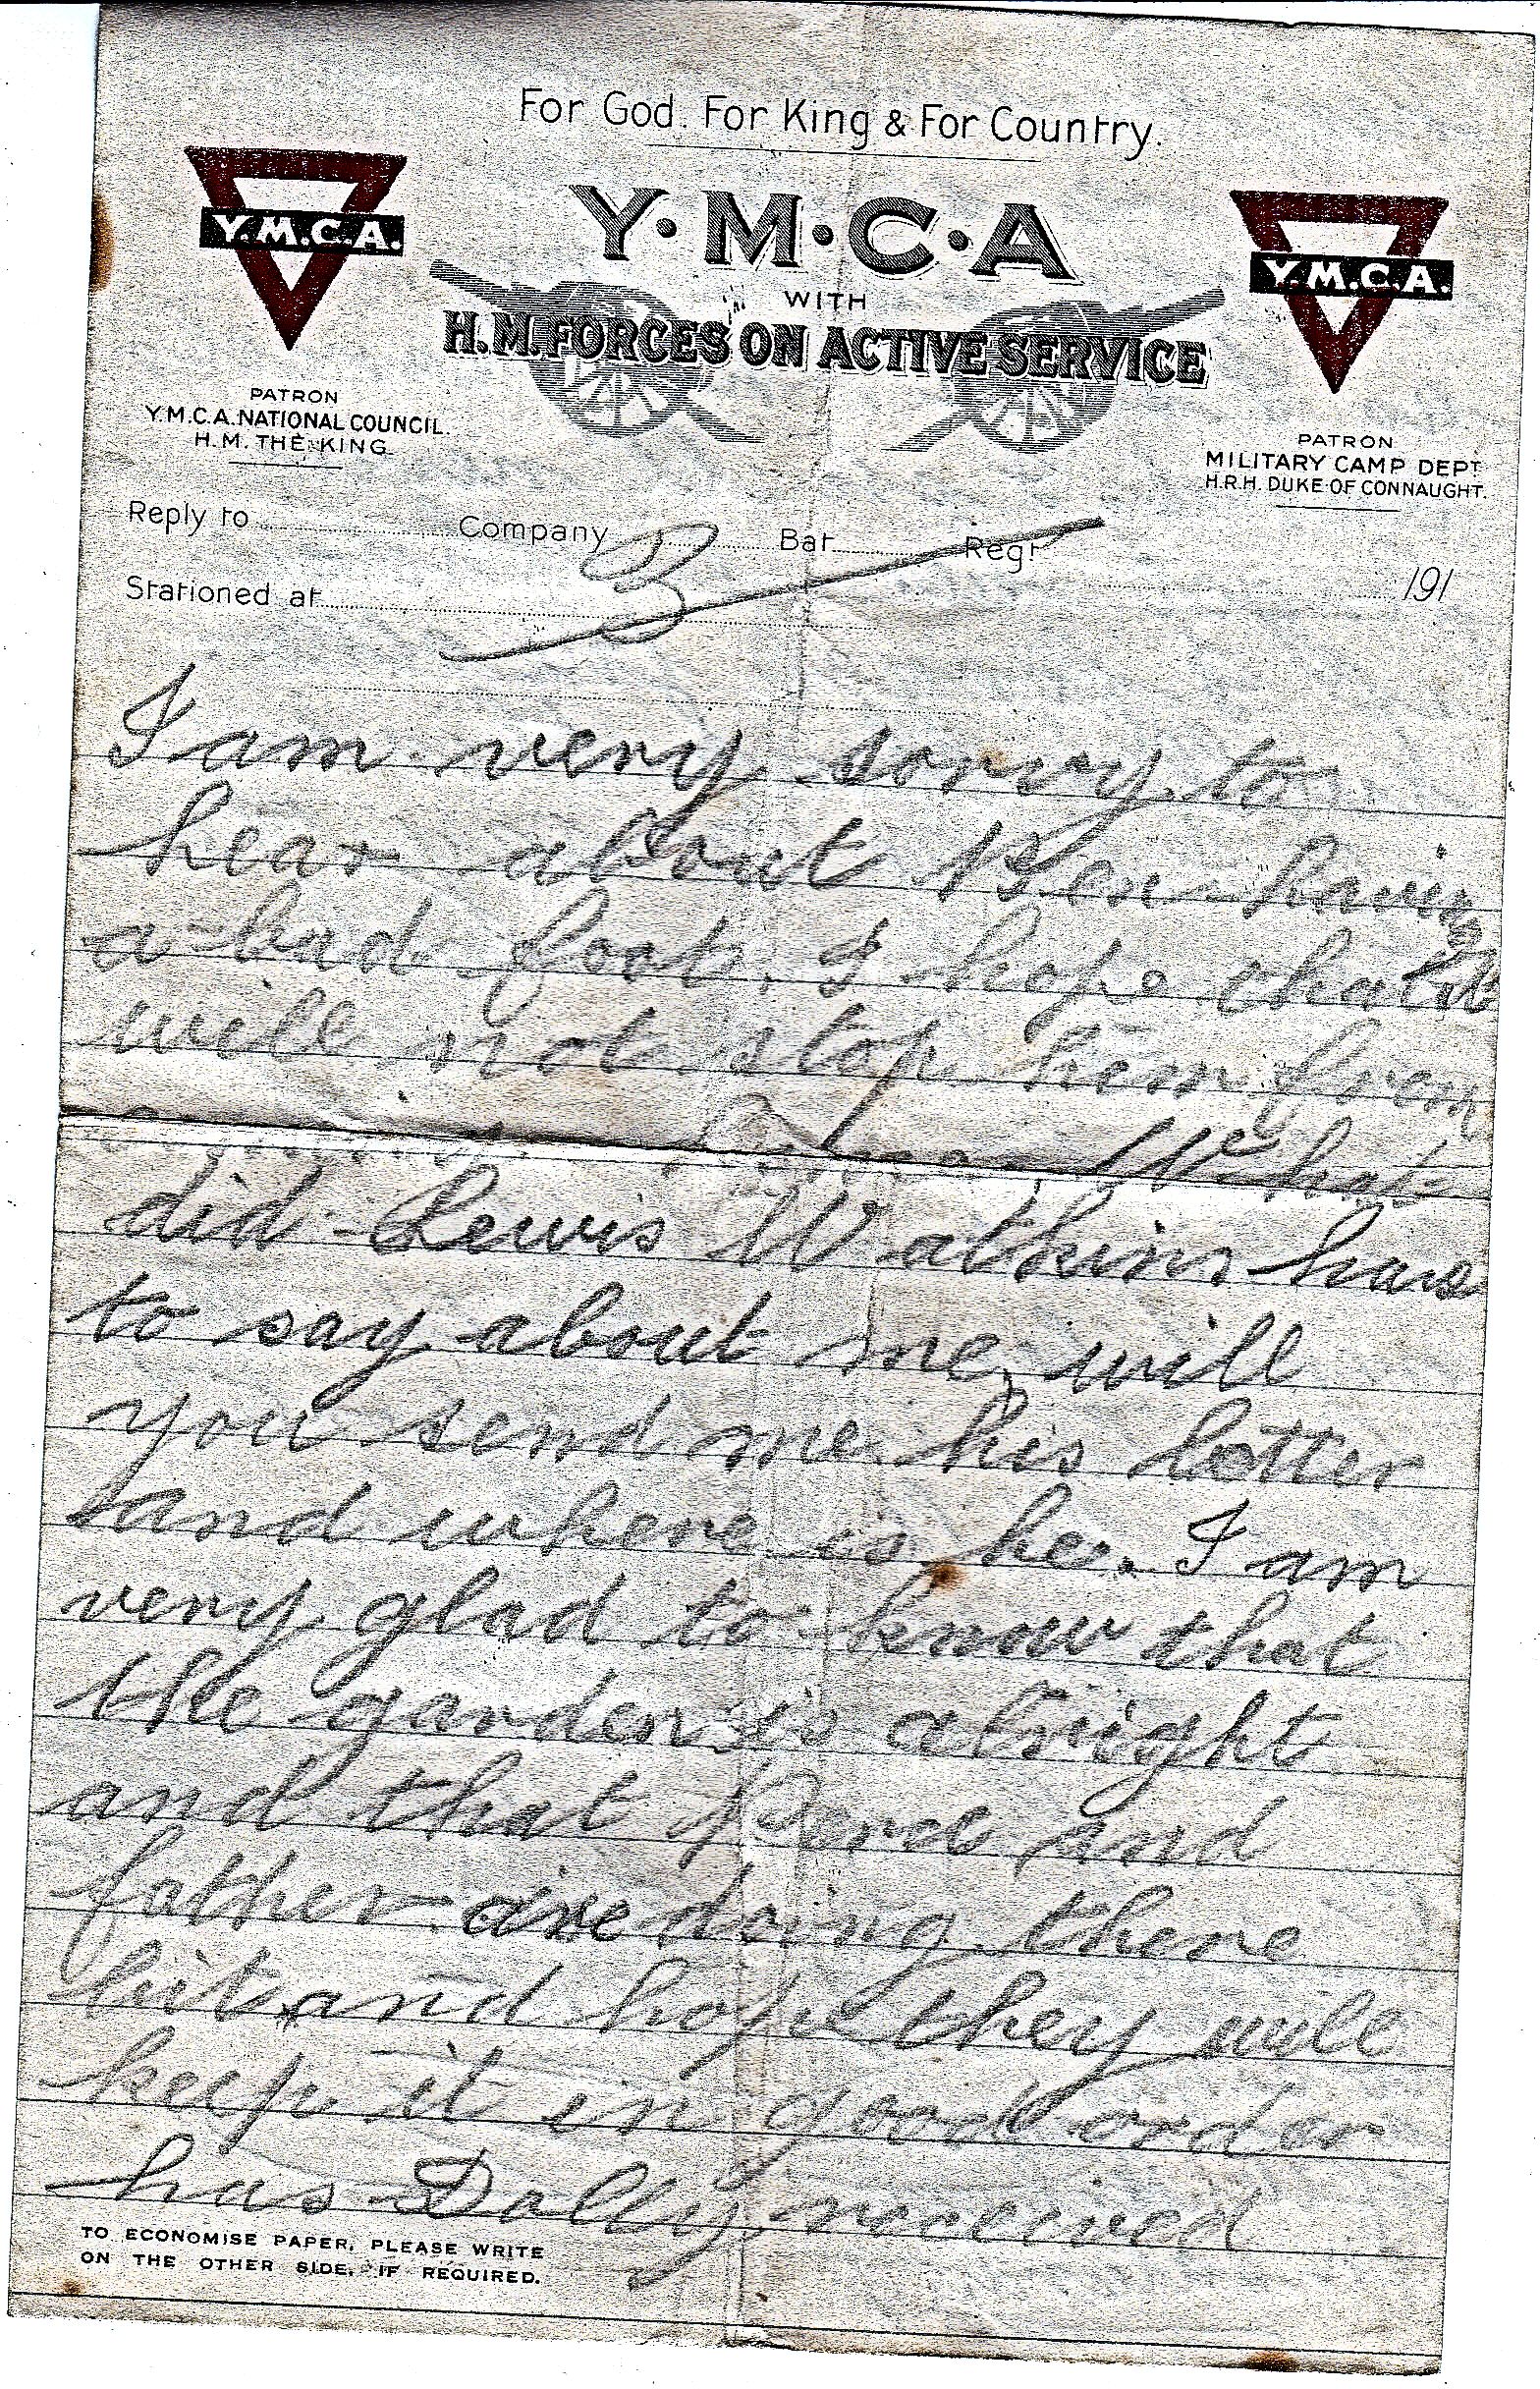 For God. For King & For Country.
Y.M.C.A.
Y·M·C·A
Y.M.C.A.
WITH
H.M. FORCES ON ACTIVE SERVICE
PATRON
Y.M.C.A. NATIONAL COUNCIL.
H.M. THE KING.
PATRON
MILITARY CAMP DEPT
H.R.H. DUKE OF CONNAUGHT.
Reply to Company Bat. Regt.
Stationed at 191
3
I am very sorry to
hear about Ben having
a bad foot, I hope that it
will not stop him from
What
did Lewis Watkins have
to say about me, will
you send me his letter
and where is he. I am
very glad to know that
the garden is alright
and that and
father are doing there
bit and hope they will
keep it in good order
has Dolly received
TO ECONOMISE PAPER, PLEASE WRITE
ON THE OTHER SIDE, IF REQUIRED.